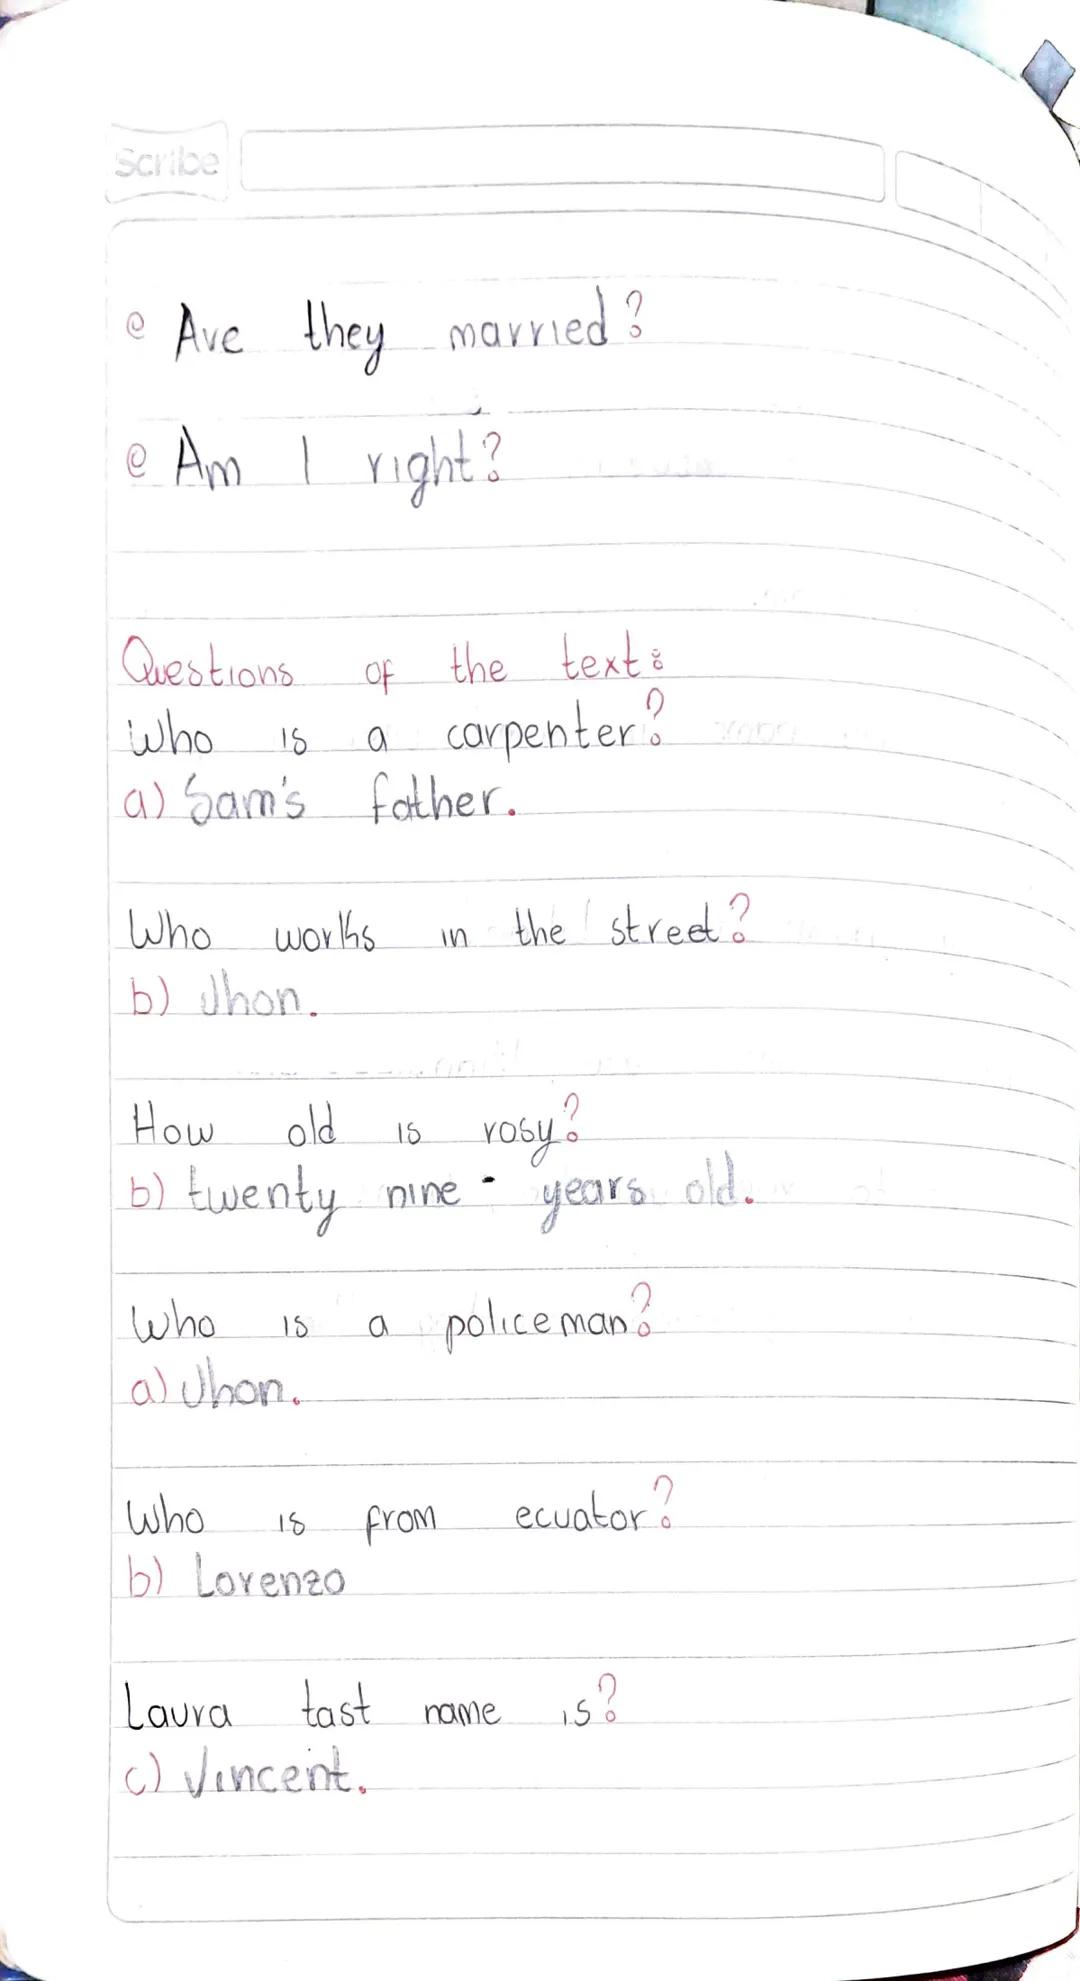 Scribe
Are they married?
Am I right?
Questions of the text:
Who is a carpenter?
a) Sam's father.
Who works in the street?
b) Jhon.
How old is rosy?
b) twenty nine - years old.
Who is a policeman?
a) Jhon.
Who is from ecuator?
b) Lorenzo
Laura tast name is?
c) Vincent.